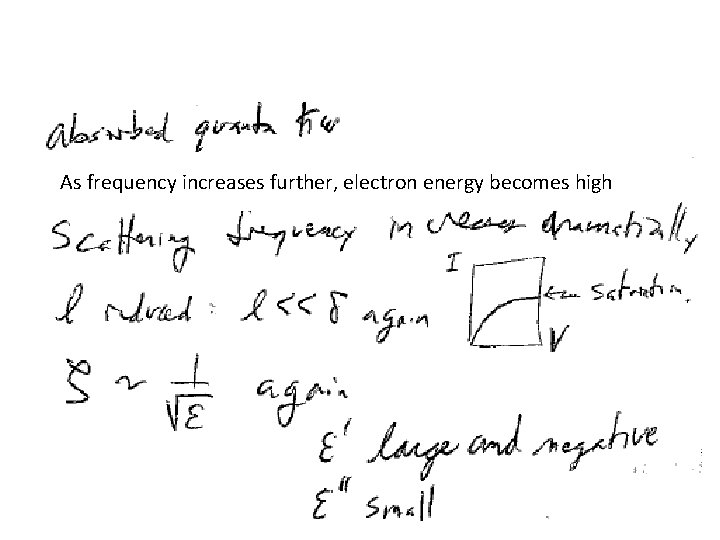 absorbed quanta ħω
As frequency increases further, electron energy becomes high
Scattering frequency increases dramatically
I
l reduced : l << δ again
← saturation.
V
ζ ~ 1/√ε again
ε' large and negative
ε'' small